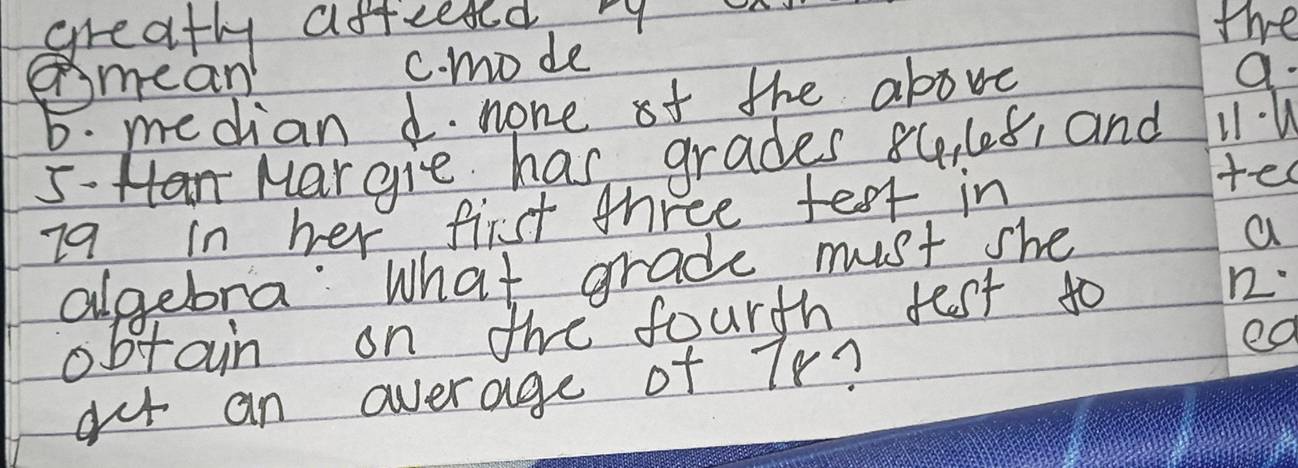 greatly affected by
a. mean c. mode
b. median d. none of the above
5. Margie has grades 84, 68, and
79 in her first three test in
algebra. What grade must she
obtain on the fourth test to
get an average of 78?
the
a.
11.
tec
a
12.
ea